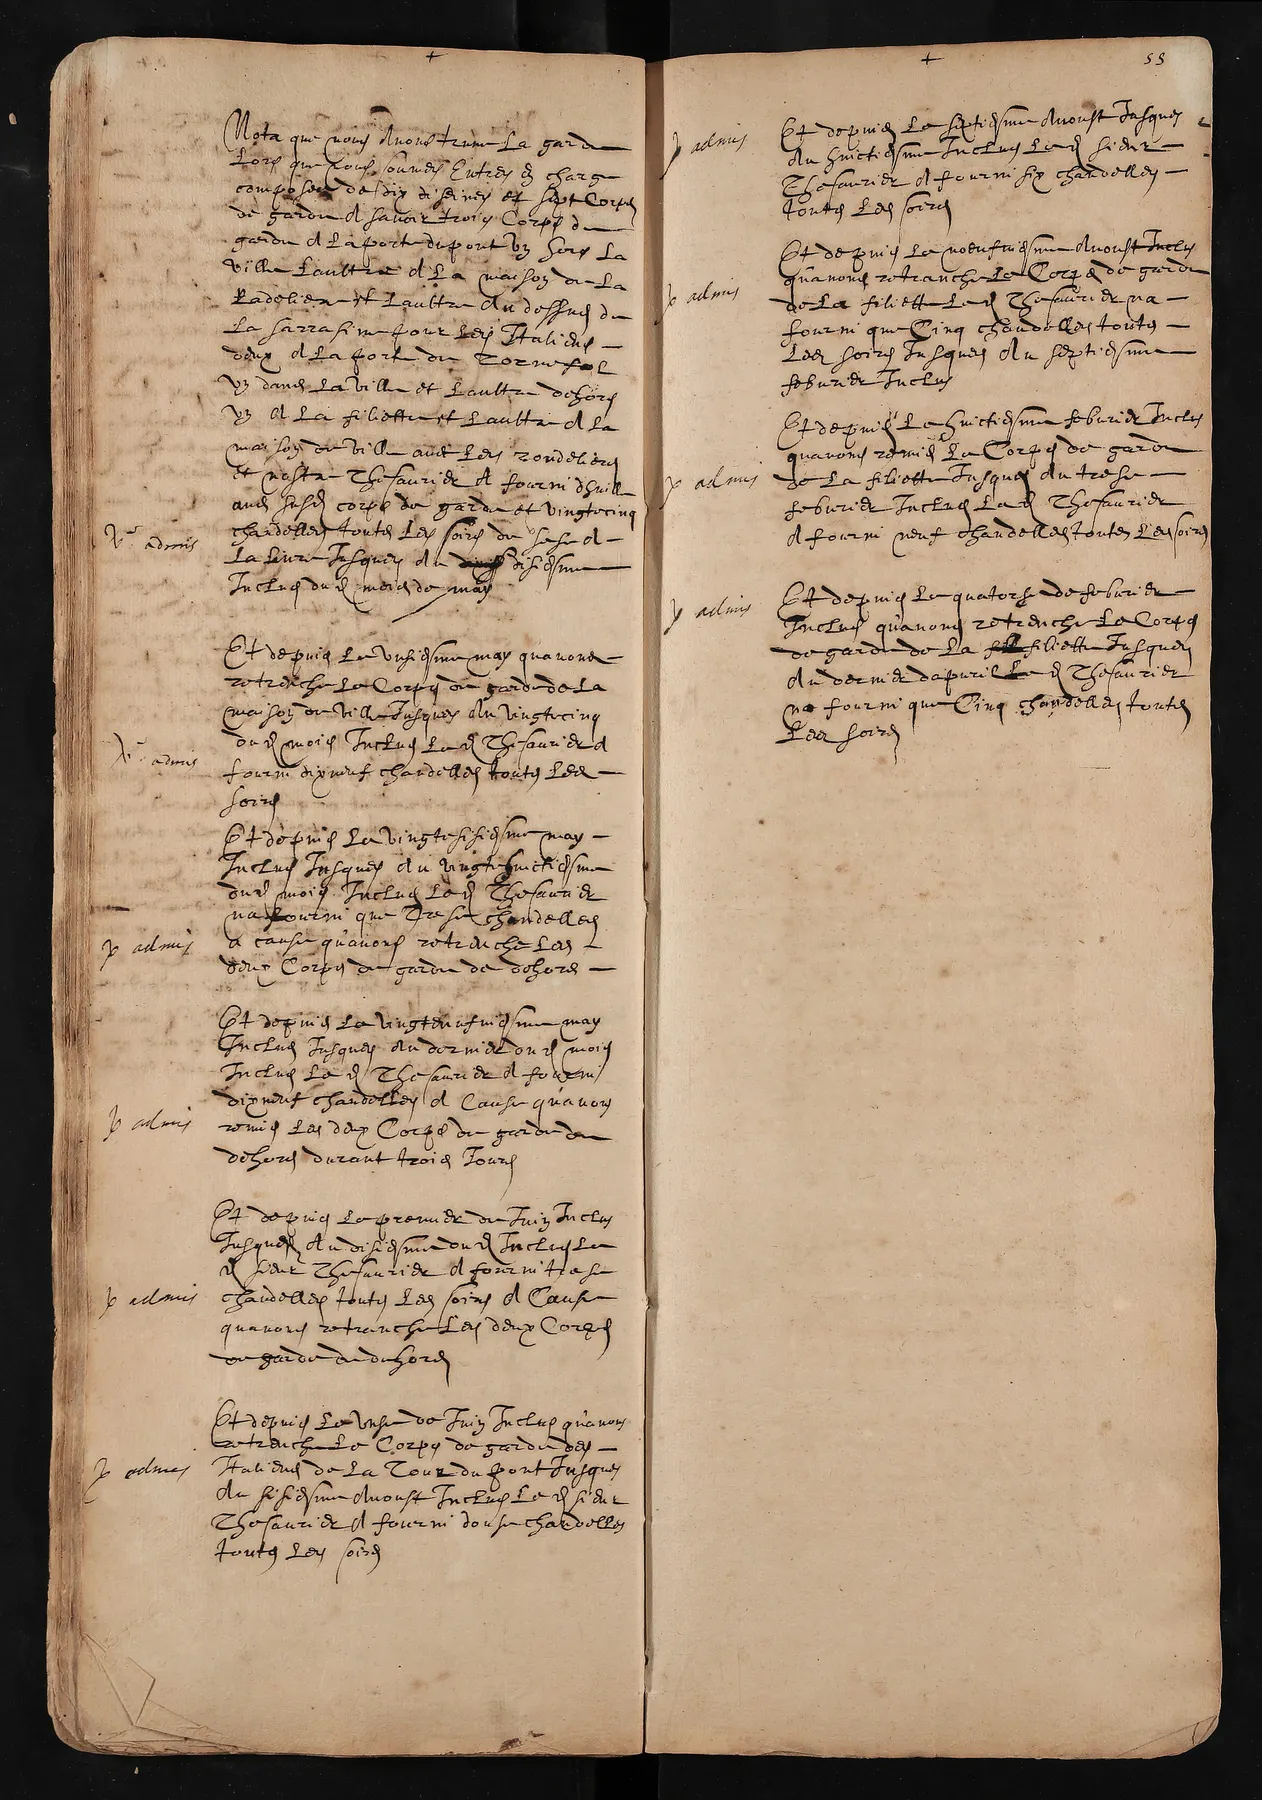 +
Nota que nous avons trouve La garde
Lors que nous sommes Entres en charge
composee de dix diseines et sept Corps
de garde A savoir trois Corps de
garde A La porte du pont un sors La
ville Laultre A La maison de La
Radeliere et Laultre Au dessus de
La sarrasine pour Les Italiens
deux A La porte de
un dans La ville et Laultre dehors
un A La filiette et Laultre A La
maison de ville avec Les rondeliers
et nostre Thesaurier A fourni dhuille
aud susd corps de garde et vingtecinq
chandelles toutes Les soires de sese A
La Livre Jusques Au disiesme
Inclus dud mois de may
admis
Et depuis Le unsiesme may quavons
retrenche Le Corps de garde de La
maison de ville Jusques Au vingtecinq
dud mois Inclus Le d Thesaurier A
fourni dixneuf chandelles toutes Les
soires
admis
Et depuis Le vingtesisiesme may
Inclus Jusques Au vingtehuictiesme
dud mois Inclus Le d Thesaurier
na fourni que Trese chandelles
a cause quavons retrenche Les
deux Corps de garde de dehors
p admis
Et depuis Le vingteneufviesme may
Inclus Jusques Au dernier dud mois
Inclus Le d Thesaurier A fourni
dixneuf chandelles A Cause quavons
remis Les deux Corps de garde de
dehors durant trois Jours
p admis
Et depuis Le premier de Juin Inclus
Jusques Au disiesme dud Inclus Le
d sieur Thesaurier A fourni trese
chandelles toutes Les soires A Cause
quavons retranche Les deux Corps
de garde de dehors
p admis
Et depuis Le unse de Juin Inclus quavons
retrenche Le Corps de garde des
Italiens de La Tour du pont Jusques
Au sisiesme Avoust Inclus Le d sieur
Thesaurier A fourni douse chandelles
toutes Les soires
p admis
+
55
Et depuis Le septiesme Avoust Jusques
Au huictiesme Inclus Le d sieur
Thesaurier A fourni six chandelles
toutes Les soires
p admis
Et depuis Le noeufviesme Avoust Inclus
quavons retranche Le Corps de garde
de La filiette Le d Thesaurier na
fourni que Cinq chandelles toutes
Les soires Jusques Au septiesme
feburier Inclus
p admis
Et depuis Le huictiesme feburier Inclus
quavons remis Le Corps de garde
de La filiette Jusques Au trese
feburier Inclus Le d Thesaurier
A fourni neuf chandelles toutes Les soires
p admis
Et depuis Le quatorse de feburier
Inclus quavons retrenche Le Corps
de garde de La filiette Jusques
Au dernier dapuril Le d Thesaurier
na fourni que Cinq chandelles toutes
Les soires
p admis